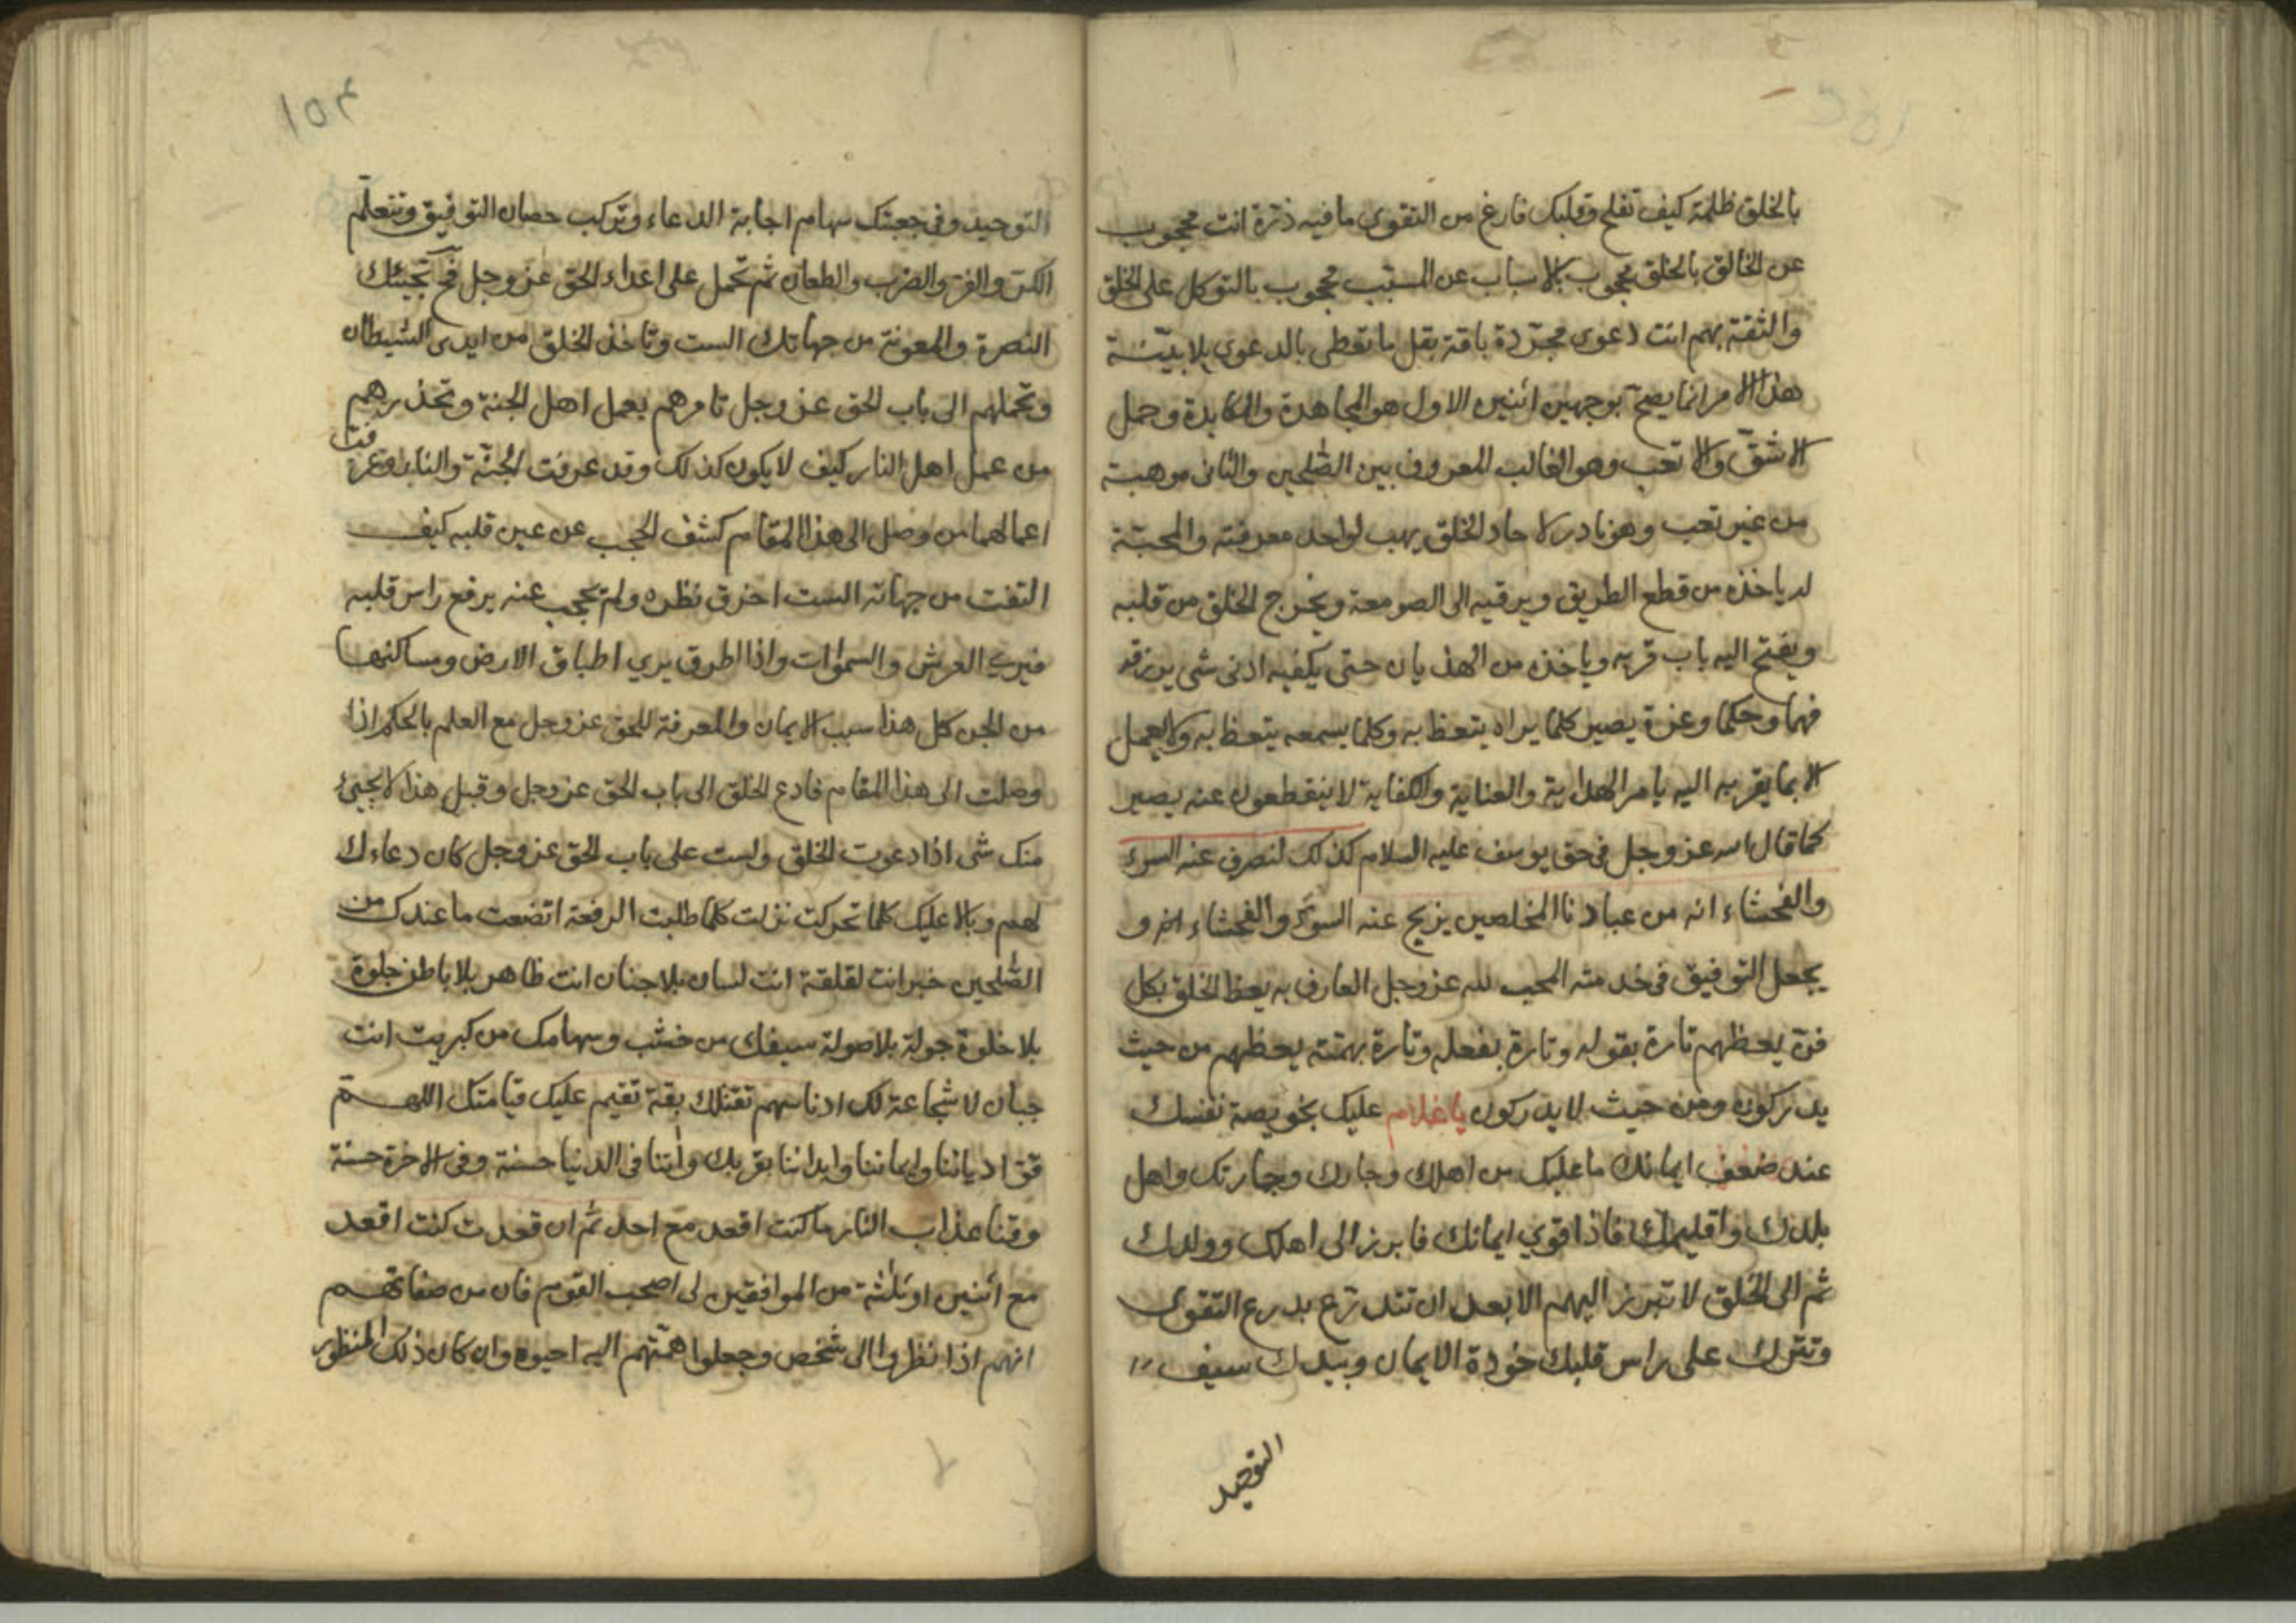 بالخلق ظلمة كيف تفلح وقلبك فارغ من التقوى ما فيه ذرة انت محجوب
عن الخالق بالخلق محجوب بالاسباب عن المسبب محجوب بالتوكل على الخلق
والثقة بهم انت دعوى مجردة باقة بقل ما تعطى بالدعوى بلا بينة
هذا الامر انما يصح بوجهين اثنين الاول هو المجاهدة والمكابدة وحمل
الاشق والاتعب وهو الغالب المعروف بين الصلحين والثانى موهبة
من غير تعب وهو نادر لاحاد الخلق يهب لواحد معرفته والمحبة
له ياخذه من قطع الطريق ويرقيه الى الصومعة ويخرج الخلق من قلبه
ويفتح اليه باب قربه وياخذه من الهذيان حتى يكفيه ادنى شى يرزقه
فهما وحكما وعزة يصير كلما يراه يتعظ به وكلما يسمعه يتعظ به ولا يعمل
الا بما يقربه اليه يامر الهداية والعناية والكفاية لا ينقطعون عنه يصير
كما قال الله عز وجل فى حق يوسف عليه السلام كذلك لنصرف عنه السوء
والفحشاء انه من عبادنا المخلصين يزيح عنه السوء والفحشاء و
يجعل التوفيق فى خدمته المحب لله عز وجل العارف به يعظ الخلق بكل
فن يعظهم تارة بقوله وتارة بفعله وتارة بهمته يعظهم من حيث
يدركون ومن حيث لا يدركون يا غلام عليك بخويصة نفسك
عند ضعف ايمانك ما عليك من اهلك وجارك وجارتك واهل
بلدك واقليمك فاذا قوي ايمانك فابرز الى اهلك وولدك
ثم الى الخلق لا تبرز اليهم الا بعد ان تتدرع بدرع التقوى
وتترك على راس قلبك خوذة الايمان وبيدك سيف
التوحيد
١٥٣
التوحيد وفى جعبتك سهام اجابة الدعاء وتركب حصان التوفيق وتتعلم
الكر والفر والضرب والطعان ثم تحمل على اعداء الحق عز وجل فح تجيئك
النصرة والمعونة من جهاتك الست وتاخذ الخلق من ايدى الشيطان
وتحملهم الى باب الحق عز وجل تامرهم بعمل اهل الجنة وتحذرهم
من عمل اهل النار كيف لا يكون كذلك وقد عرفت الجنة والنار وعرفت
اعمالهما من وصل الى هذا المقام كشف الحجب عن عين قلبه كيف
التفت من جهاته الست اخرق نظره ولم يحجب عنه يرفع راس قلبه
فيرى العرش والسموات واذا اطرق يري اطباق الارض ومساكنها
من الجن كل هذا سبب الايمان والمعرفة للحق عز وجل مع العلم بالحكم اذا
وصلت الى هذا المقام فادع الخلق الى باب الحق عز وجل وقبل هذا لا يجيئ
منك شى اذا دعوت الخلق ولست على باب الحق عز وجل كان دعاءك
لهم وبالا عليك كلما تحركت نزلت كلما طلبت الرفعة اتضعت ما عندك من
الصلحين خبر انت لقلقة انت لسان بلا جنان انت ظاهر بلا باطن جلوة
بلا خلوة جولة بلا صولة سيفك من خشب وسهامك من كبريت انت
جبان لا شجاعة لك ادنا سهم تقتلك بقة تقيم عليك قيامتك اللهم
قو ادياننا وايماننا وابداننا بقربك واتنا فى الدنيا حسنة وفى الاخرة حسنة
وقنا عذاب النار ما كنت اقعد مع احد ثم ان قعدت كنت اقعد
مع اثنين او ثلثة من الموافقين لى اصحب القوم فان من صفاتهم
انهم اذا نظروا الى شخص وجعلوا همتهم اليه احيوه وان كان ذلك المنظور